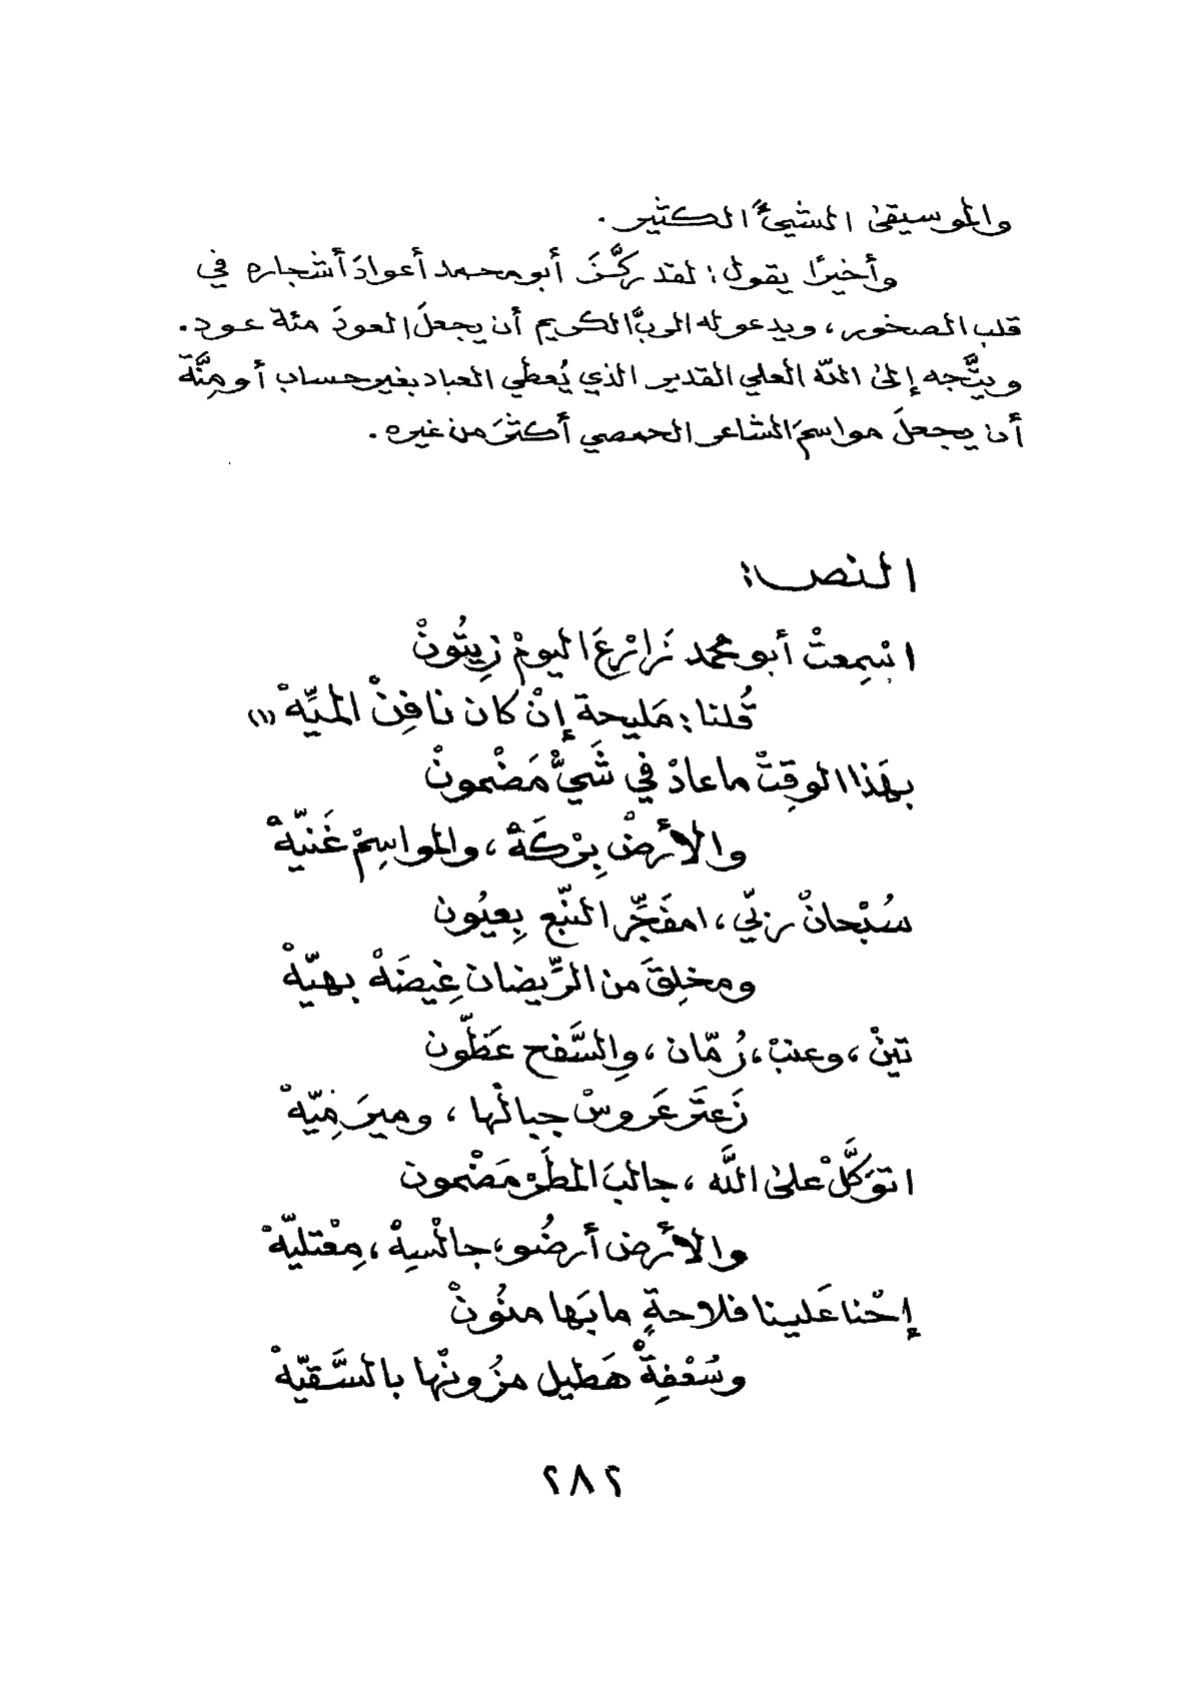 والموسيقىٰ الشيءَ الكثير.
وأخيرًا يقول: لقد ركَّزَ أبو محمد أعوادَ أشجاره في
قلب الصخور، ويدعو له الربَّ الكريم أن يجعلَ العودَ مئة عود.
ويتَّجه إلىٰ اللّه العلي القدير الذي يُعطي العباد بغير حساب أو مِنَّة
أن يجعلَ مواسمَ الشاعر الحمصي أكثرَ من غيره.
النص:
اسْمِعتْ أبو محمد زَارْعَ اليومْ زِيتُونْ
قُلنا: مَليحة إنْ كان نافِنْ الميِّهْ (١)
بهَذا الوقِتْ ما عادْ في شَيْ مَضْمونْ
والأرضْ بِرْكَهْ، والمواسِمْ غَنيّهْ
سُبْحانْ ربّي، امفَجِّر النّبع بِعيُون
ومخلِقَ من الرِّيضان غِيضَهْ بهيّهْ
تينْ، وعنبْ، رُمّان، والسَّفح عَظّون
زَعتَر عَروسْ جبالْها، وميرَ مِيّهْ
اتوَكَّلْ علىٰ اللَّه، جالبَ المطَرْ مَضْمون
والأرض أرضُو، جالْسِهْ، مِعْتليّهْ
إحْنا عَلينا فلاحةٍ ما بَها منُونْ
وسُعْفِةْ هَطيل مزُونْها بالسَّقيّهْ
٢٨٢